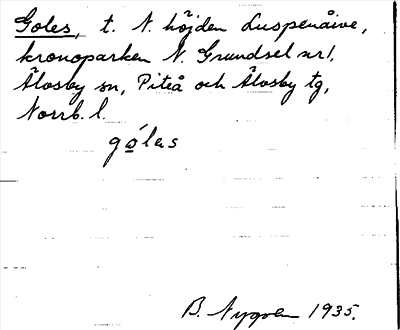 Goles, t. N. höjden Luspenåive,
kronoparken N. Grundsel nr 1,
Älvsby sn, Piteå och Älvsby tg,
Norrb. l.
gó̱las
B. Nygren 1935.